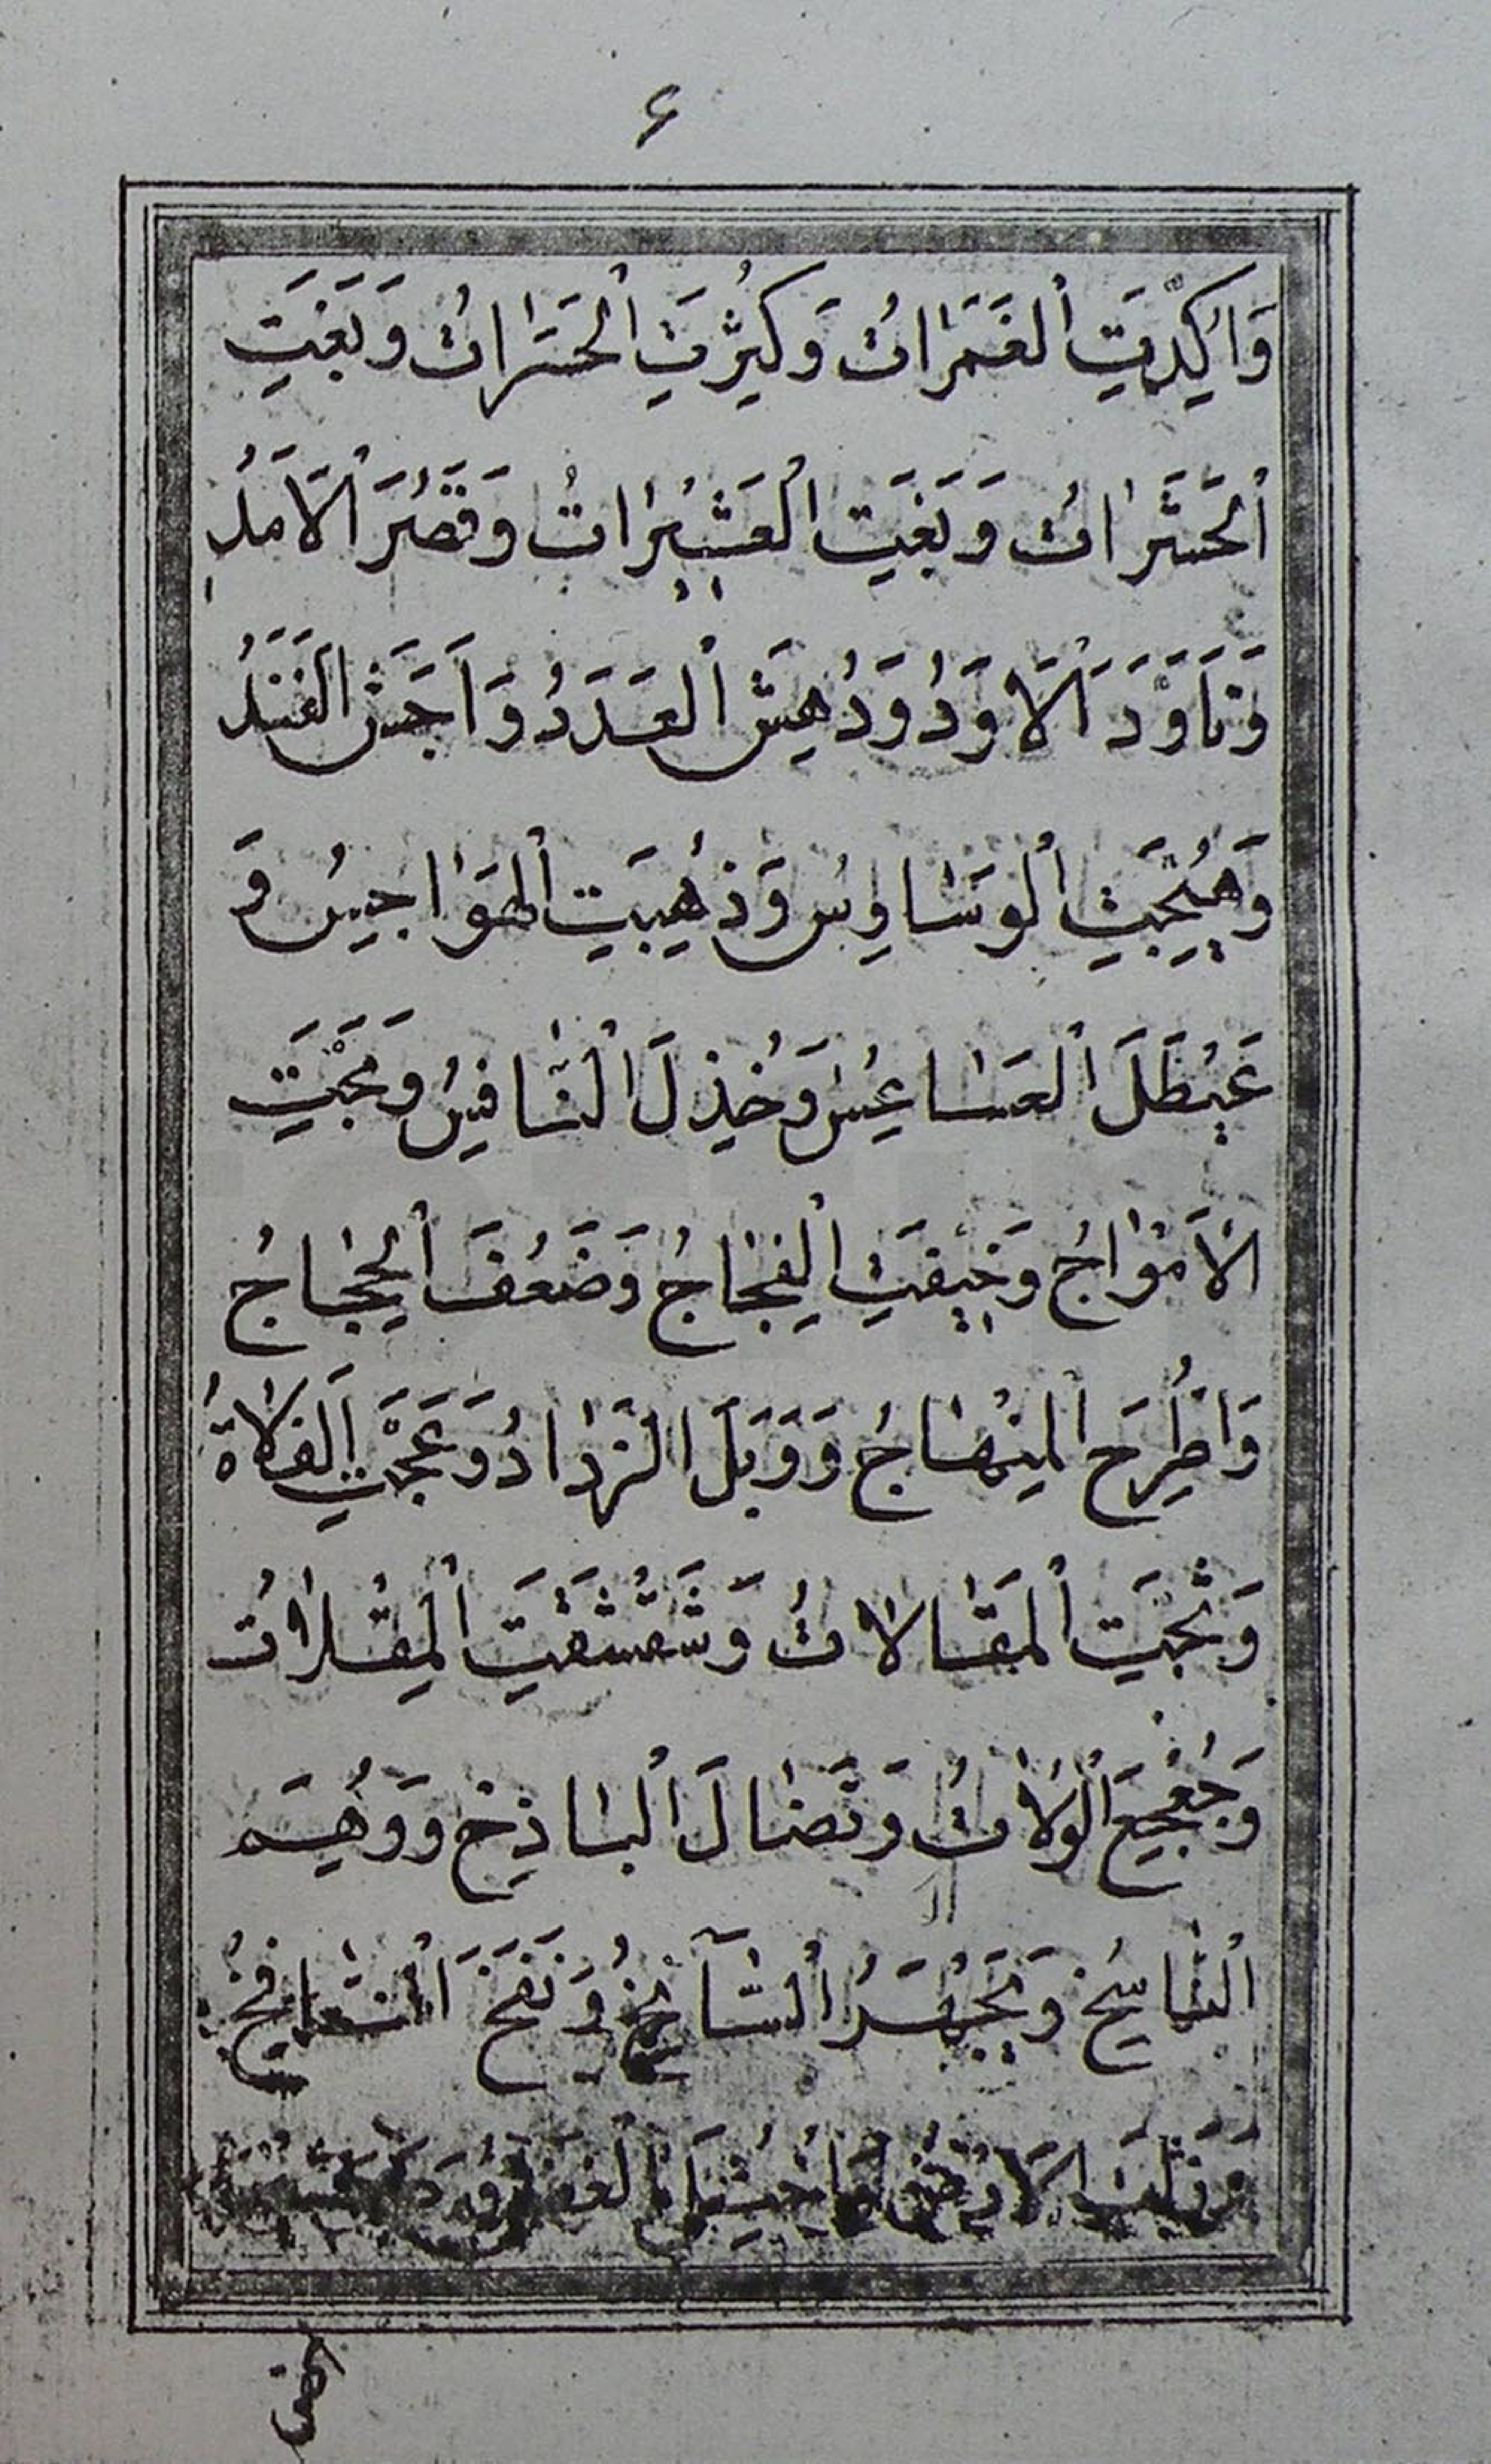 ۶
وَاُكِدِّيَتِ ٱلغَمَرَاتُ وَكُثِّرَتِ ٱلحَسَرَاتُ وَبَغَيَتِ
ٱلحَشَرَاتُ وَبَغَيَتِ العَشِيرَاتُ وَقَصُرَ ٱلاَمَلُ
وَتَاَوَّدَ ٱلاَوَدُ وَدُهِشَ ٱلعَدَدُ وَاَجَشَ الفَنَدُ
وَهُيِّجَتِ ٱلوَسَاوِسُ وَذُهِبَتِ ٱلهَوَاجِسُ وَ
عَيطَلَ ٱلعَسَاعِسُ وَخُذِلَ ٱلنَّافِسُ وَمَجَّتِ
الاَمْوَاجُ وَخِيفَتِ ٱلفِجَاجُ وَضَعُفَ ٱلحِجَاجُ
وَاطُّرِحَ ٱلمِنهَاجُ وَوَبَلَ الرَّدَادُ وَعَجَّتِ ٱلفَلَاةُ
وَثَجَّتِ ٱلمَقَالَاتُ وَشَقشَقَتِ ٱلمِقلَاتُ
وَجُعجِعَ ٱلوُلَاتُ وَتَضَاَلَ ٱلبَاذِخُ وَوُهِمَ
ٱلنَّاسِخُ وَتَجَيهَرُ ٱلشَّآمِخُ وَنَفَخَ ٱلنَّافِخُ
وَزُلزِلَتِ الاَرضُ